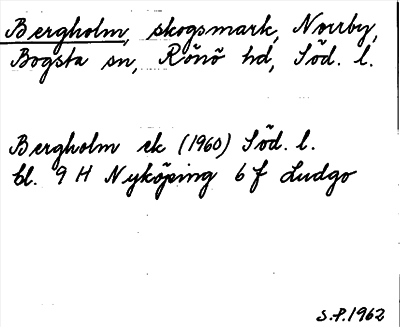 Bergholm, skogsmark, Norrby,
Bogsta sn, Rönö hd, Söd. l.
Bergholm ek (1960) Söd. l.
bl. 9 H Nyköping 6 f Ludgo
S.P. 1962